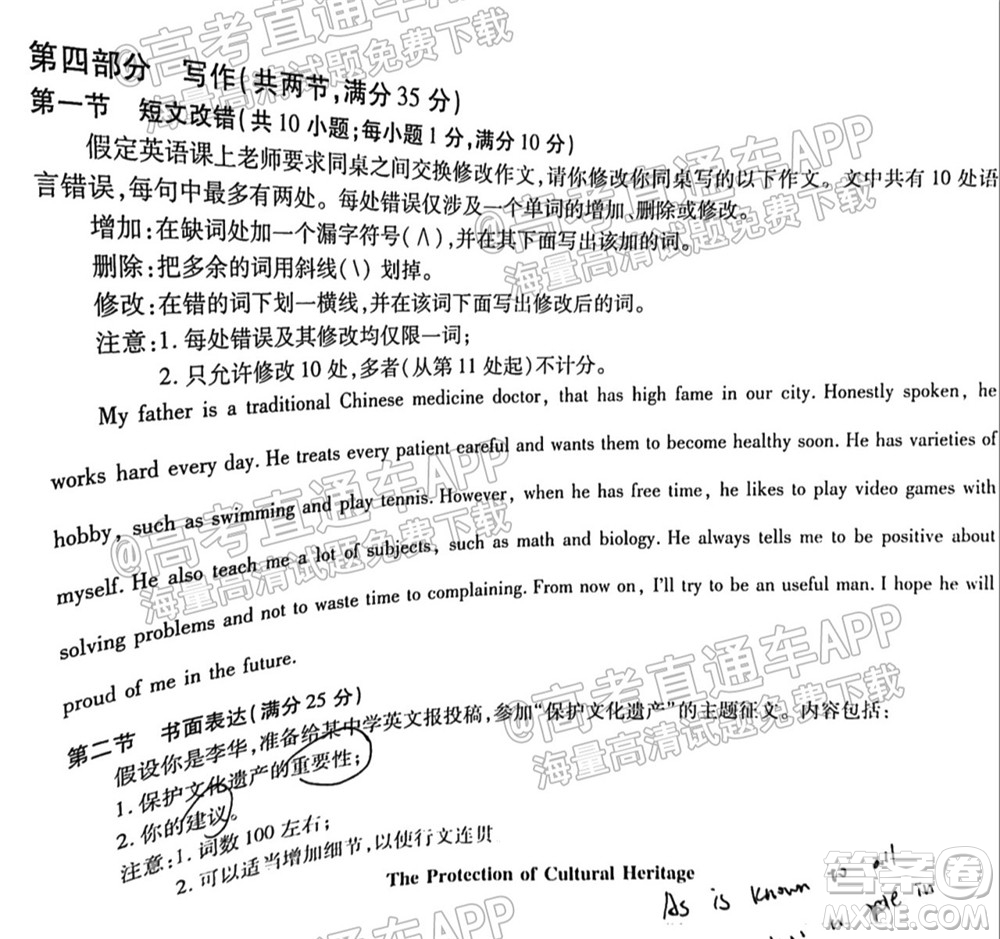 @高考直通车APP
海量高清试题免费下载
第四部分 写作(共两节,满分35分)
第一节 短文改错(共10小题;每小题1分,满分10分)
假定英语课上老师要求同桌之间交换修改作文,请你修改你同桌写的以下作文。文中共有10处语
言错误,每句中最多有两处。每处错误仅涉及一个单词的增加、删除或修改。
@高考直通车APP
海量高清试题免费下载
增加:在缺词处加一个漏字符号(∧),并在其下面写出该加的词。
删除:把多余的词用斜线(\)划掉。
修改:在错的词下划一横线,并在该词下面写出修改后的词。
注意:1. 每处错误及其修改均仅限一词;
2. 只允许修改10处,多者(从第11处起)不计分。
My father is a traditional Chinese medicine doctor, that has high fame in our city. Honestly spoken, he
works hard every day. He treats every patient careful and wants them to become healthy soon. He has varieties of
hobby, such as swimming and play tennis. However, when he has free time, he likes to play video games with
@高考直通车APP
海量高清试题免费下载
myself. He also teach me a lot of subjects, such as math and biology. He always tells me to be positive about
solving problems and not to waste time to complaining. From now on, I'll try to be an useful man. I hope he will
proud of me in the future.
@高考直通车APP
海量高清试题免费下载
第二节 书面表达(满分25分)
假设你是李华,准备给某中学英文报投稿,参加“保护文化遗产”的主题征文。内容包括:
1. 保护文化遗产的重要性;
2. 你的建议。
注意:1. 词数100左右;
2. 可以适当增加细节,以使行文连贯
The Protection of Cultural Heritage
As is known to all
role in
@高考直通车APP
答案圈
MXQE.COM